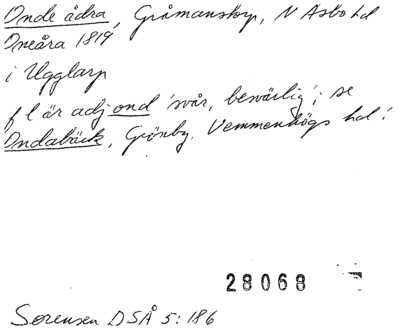 Onde ådra, Gråmanstorp, N Asbo hd
Oneåra 1819
i Ugglarp
fl är adj ond 'svår, besvärlig'; se
Ondabäck, Grönby, Vemmenhögs hd!
28068
Sörensen DSÅ 5:186